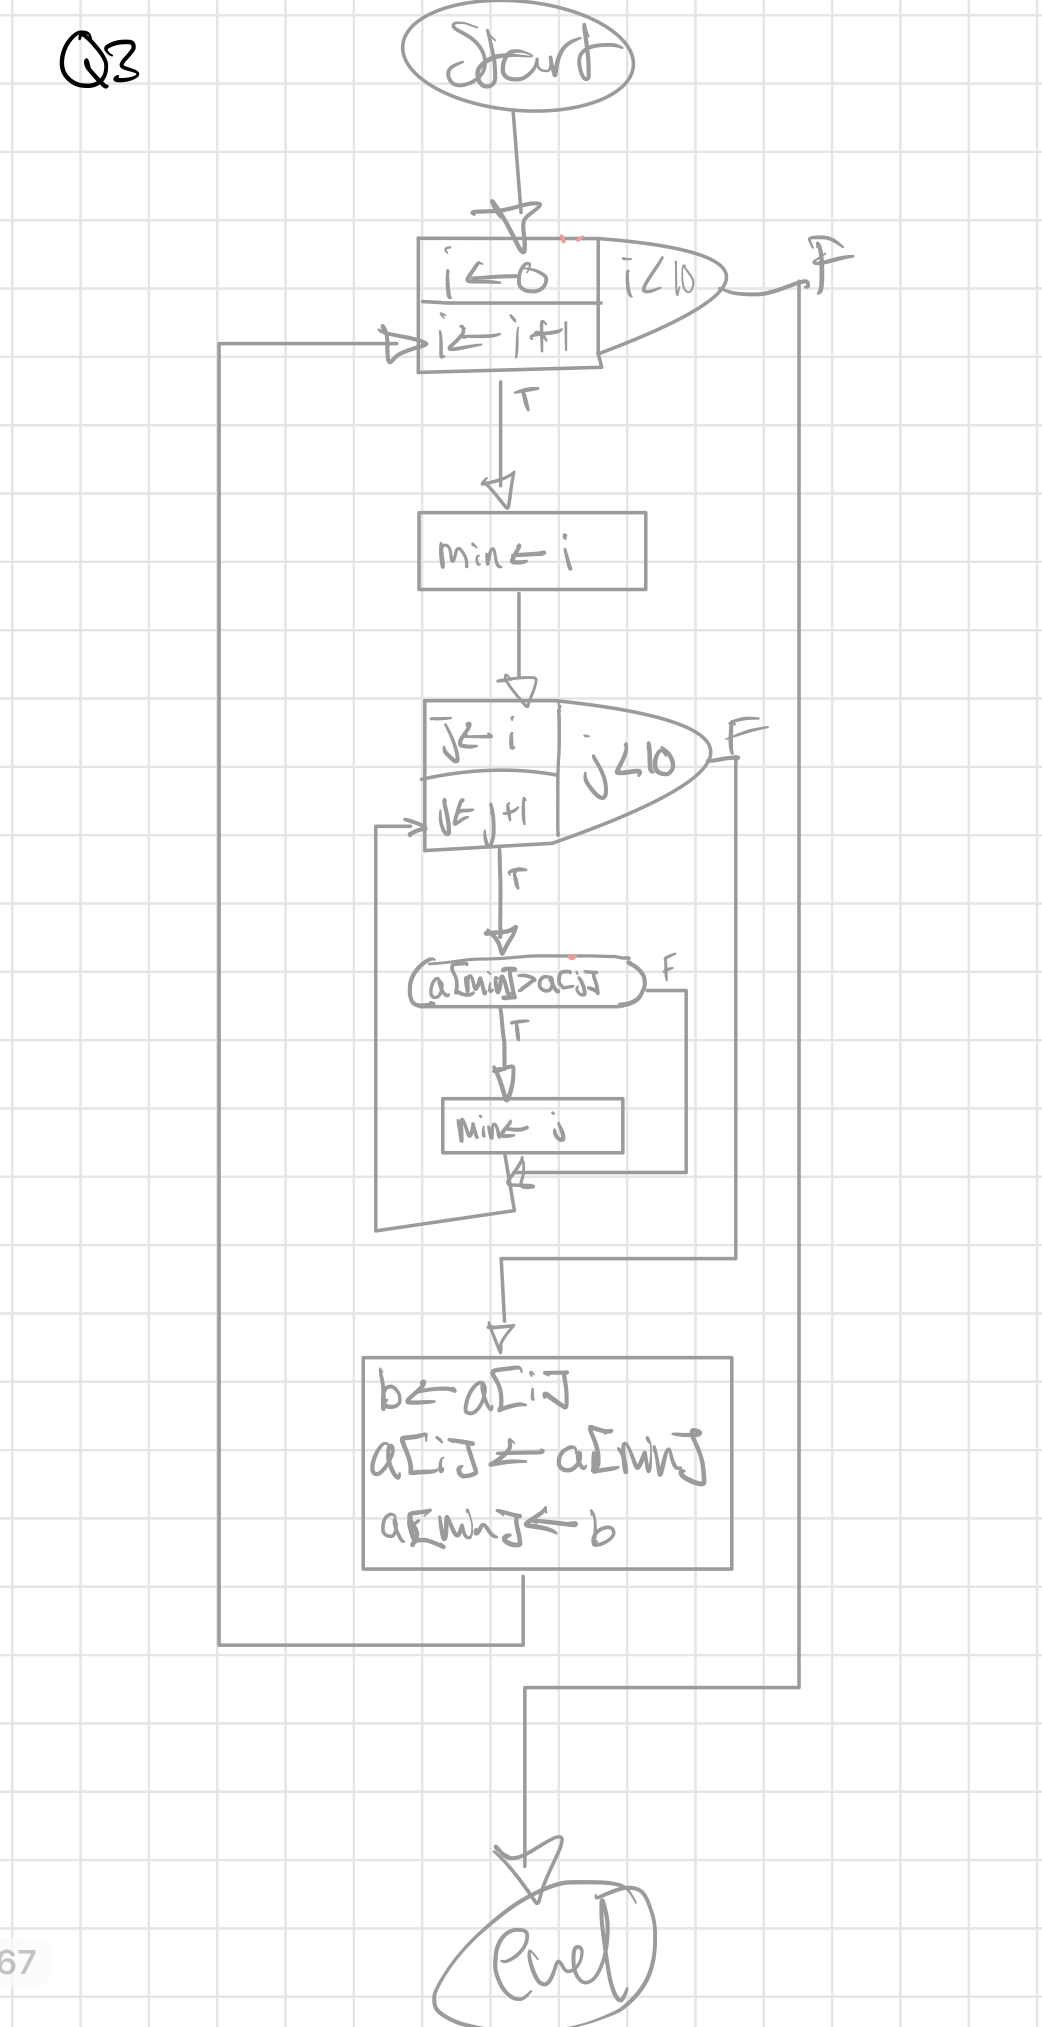 Q3
Start
i←0
i<10
F
i←i+1
T
min←i
j←i
j<10
F
j←j+1
T
a[min]>a[j]
F
T
min←j
b←a[i]
a[i]←a[min]
a[min]←b
end
67